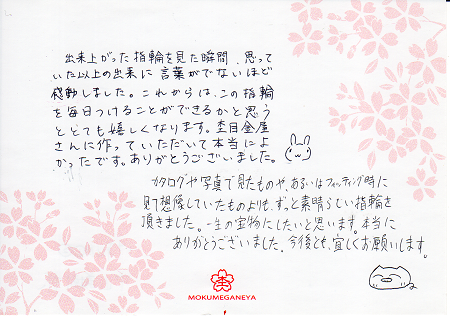 出来上がった指輪を見た瞬間、思って
いた以上の出来に言葉がでないほど
感動しました。これからは、この指輪
を毎日つけることができるかと思う
ととても嬉しくなります。杢目金屋
さんに作っていただいて本当によ
かったです。ありがとうございました。
カタログや写真で見たものや、あるいはフィッティング時に
見て想像していたものよりも、ずっと素晴らしい指輪を
頂きました。一生の宝物にしたいと思います。本当に
ありがとうございました。今後とも、宜しくお願いします。
杢
MOKUMEGANEYA